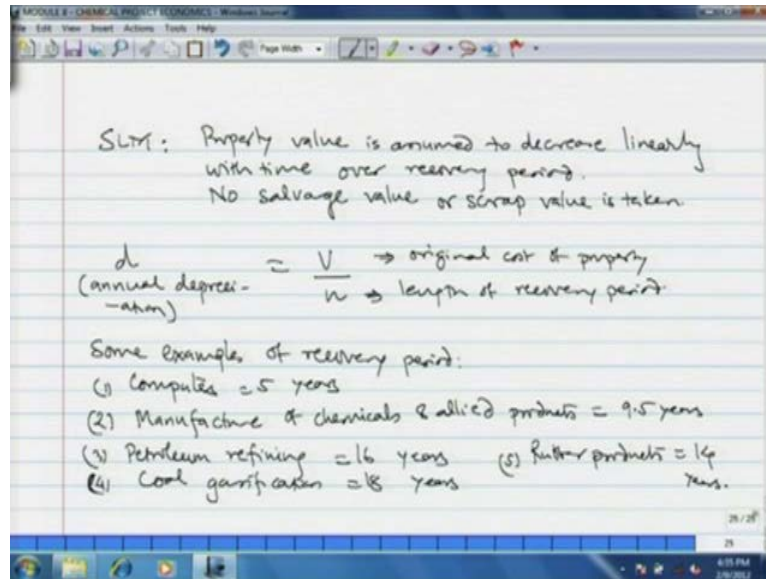 MODULE 8 - CHEMICAL PROJECT ECONOMICS - Windows Journal
File Edit View Insert Actions Tools Help
Page Width
SLM : Property value is assumed to decrease linearly
with time over recovery period.
No salvage value or scrap value is taken.
d = V → original cost of property
(annual depreci- n → length of recovery period
-ation)
Some examples of recovery period:
(1) Computers = 5 years
(2) Manufacture of chemicals & allied products = 9.5 years
(3) Petroleum refining = 16 years (5) Rubber products = 14
(4) Coal gasification = 18 years years.
25 / 25
25
6:55 PM
2/9/2012